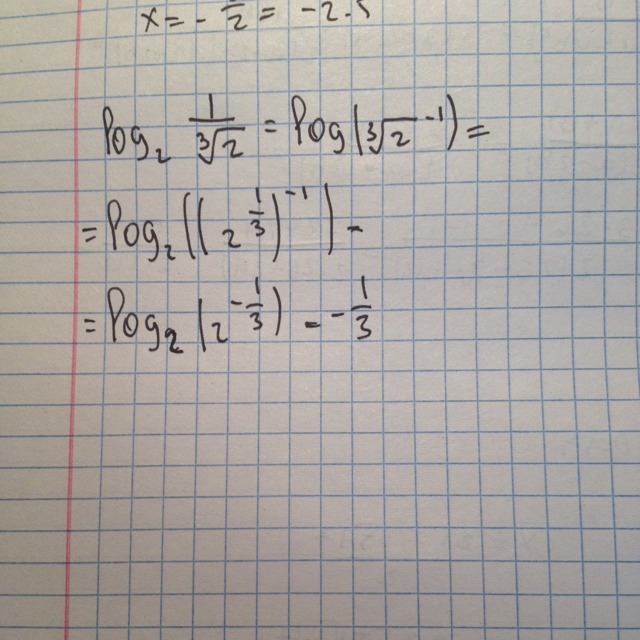 x = - 5/2 = -2.5
log₂ 1/∛2 = log(∛2⁻¹) =
= log₂((2^1/3)⁻¹) -
= log₂(2^-1/3) - -1/3